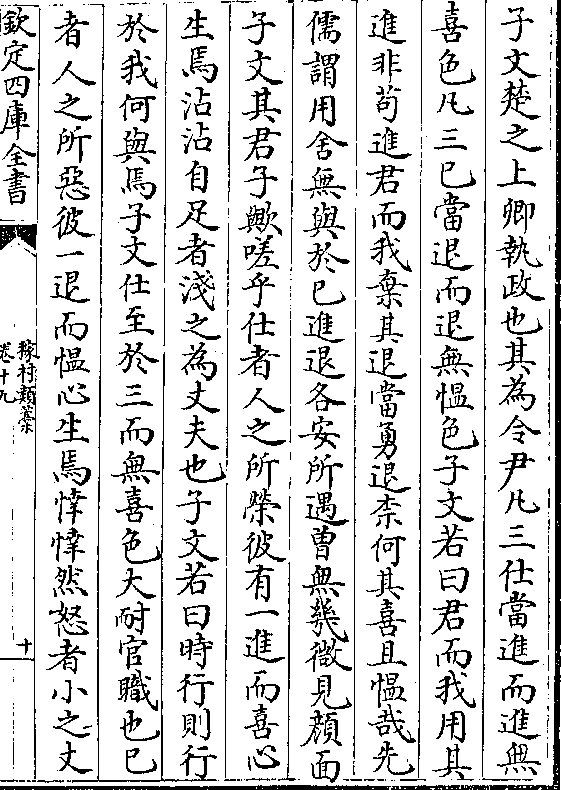 子文楚之上卿執政也其為令尹凡三仕當進而進無
喜色凡三已當退而退無愠色子文若曰君而我用其
進非苟進君而我棄其退當勇退柰何其喜且愠哉先
儒謂用舍無與於已進退各安所遇曽無幾微見顔面
子文其君子歟嗟乎仕者人之所榮彼有一進而喜心
生焉沾沾自足者淺之為丈夫也子文若曰時行則行
於我何與焉子文仕至於三而無喜色大耐官職也已
者人之所惡彼一退而愠心生焉悻悻然怒者小之丈
欽定四庫全書
稼村類藁
卷十九
十